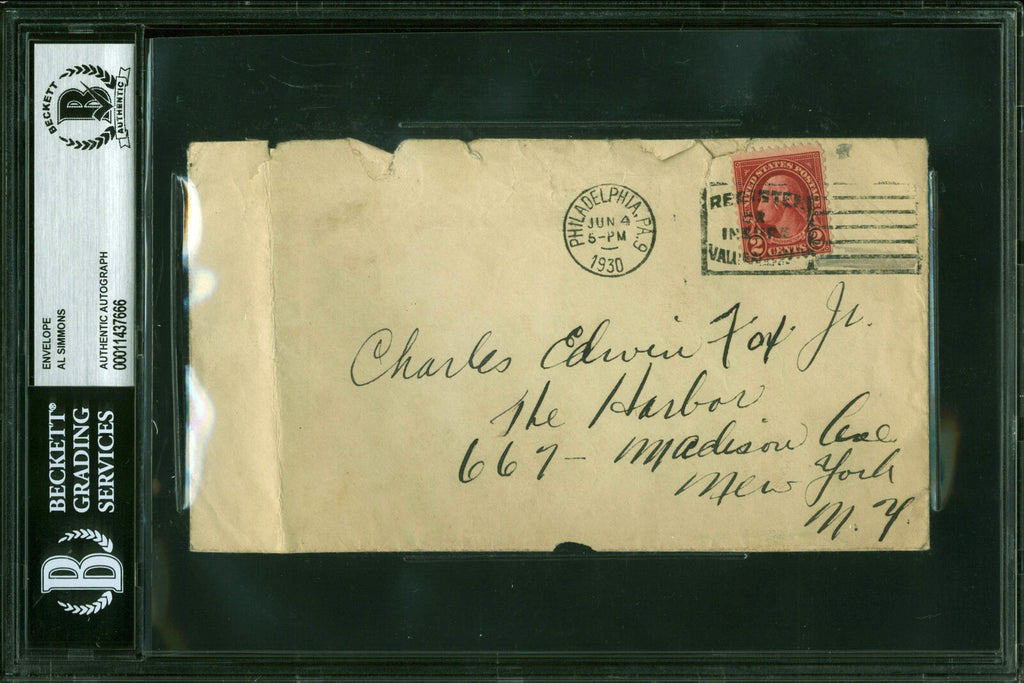 BECKETT
B
AUTHENTIC
ENVELOPE
AL SIMMONS
AUTHENTIC AUTOGRAPH
00011437666
BECKETT®
GRADING
SERVICES
B
PHILADELPHIA, PA. 9
JUN 4
5-PM
1930
UNITED STATES POSTAGE
2 CENTS 2
REGISTER
INSURE
Charles Edwin Fox Jr.
The Harbor
667- Madison Ave
New York
N. Y.